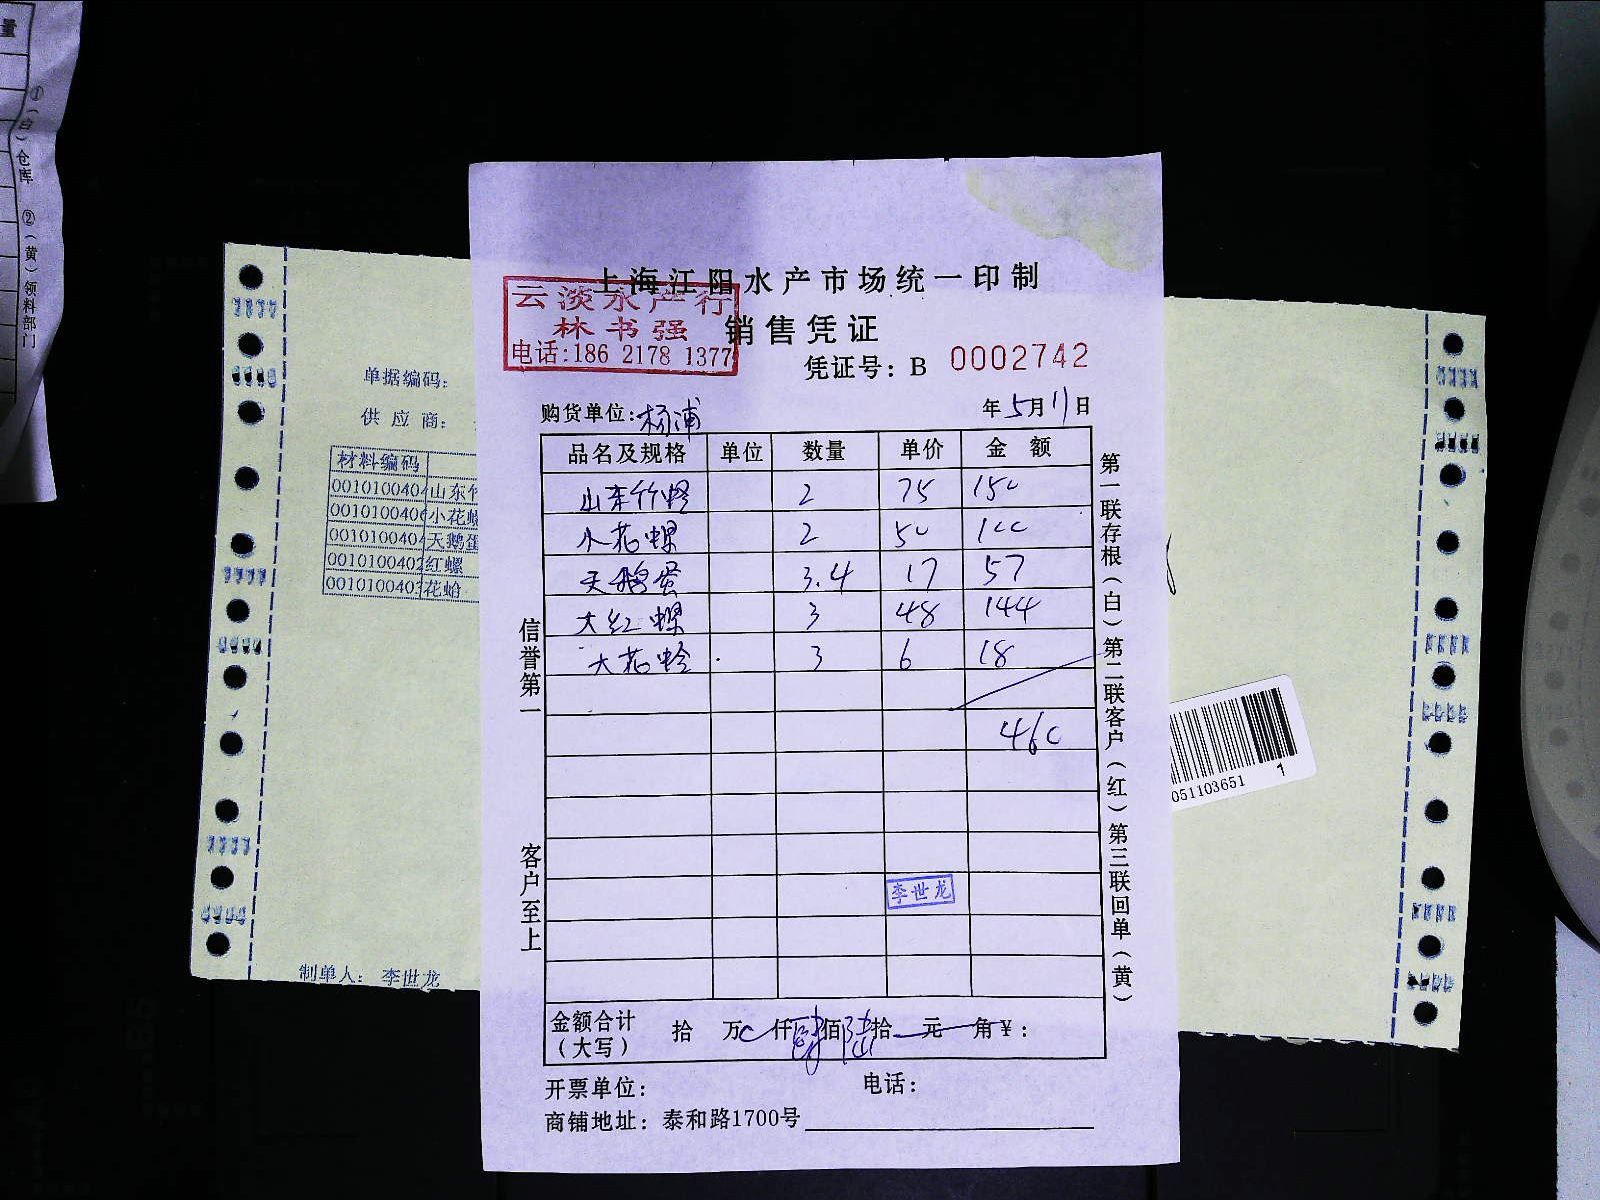 量
①(白)仓库 ②(黄)领料部门
上海江阳水产市场统一印制
云淡水产行
林书强
电话:186 2178 1377
销售凭证
凭证号: B 0002742
购货单位:杨浦 年5月11日
品名及规格 单位 数量 单价 金额
山东竹蛏 2 75 150
小花螺 2 50 100
天鹅蛋 3.4 17 57
大红螺 3 48 144
大花蛤 3 6 18
460
李世龙
金额合计(大写) 拾 万 仟肆佰陆拾 元 角¥:
开票单位: 电话:
商铺地址: 泰和路1700号
信誉第一 客户至上
第一联存根(白) 第二联客户(红) 第三联回单(黄)
单据编码:
供应商:
材料编码
00101004 山东竹
00101004 小花螺
00101004 天鹅蛋
001010040 红螺
001010040 花蛤
制单人: 李世龙
051103651 1